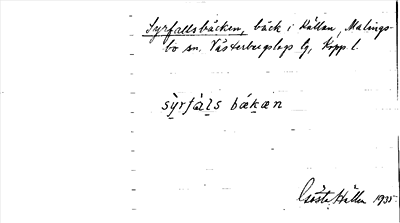 Syrfallsbäcken, bäck i Hållan, Malings-
bo sn. Västerbergslags lg, Kopp l.
sỳrfàl̥s bäkan
Gösta Hållen 1935